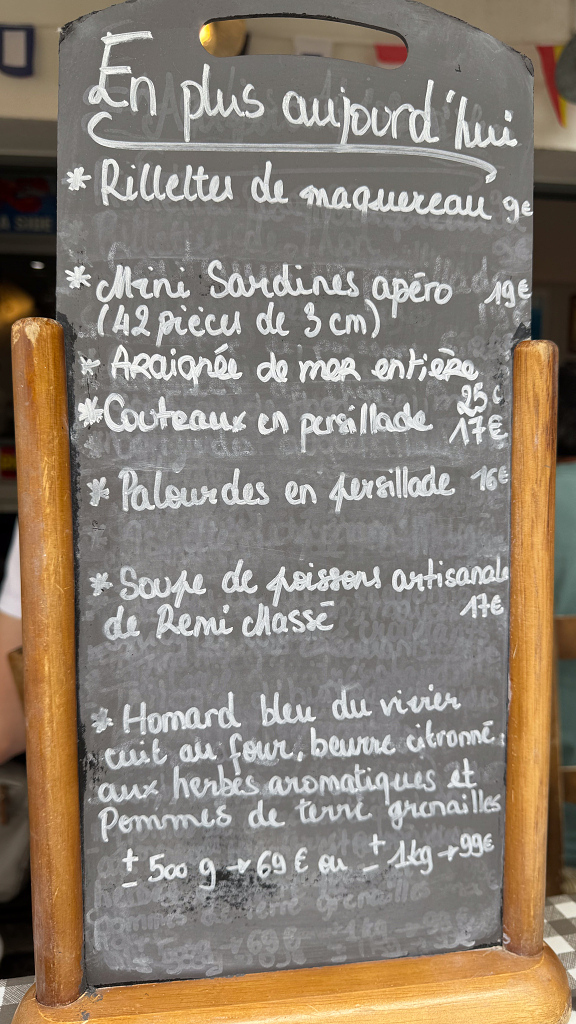 En plus aujourd'hui
* Rillettes de maquereau 9€
* Mini Sardines apéro 19€
(42 pièces de 3 cm)
* Araignée de mer entière
25€
* Couteaux en persillade 17€
* Palourdes en persillade 16€
* Soupe de poissons artisanale
de Remi Massé 17€
* Homard bleu du vivier
cuit au four, beurre citronné,
aux herbes aromatiques et
Pommes de terre grenailles
± 500 g → 69 € ou ± 1kg → 99€